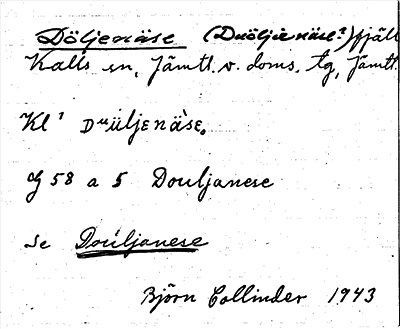 Döljenäse (Duöljenäse?) fjäll
Kalls sn, Jämtl. v. doms. tg, Jämtl.
Kl¹ Dᵘüljenàse.
Cg 58 a 5 Douljanese
se Douljanese
Björn Collinder 1943